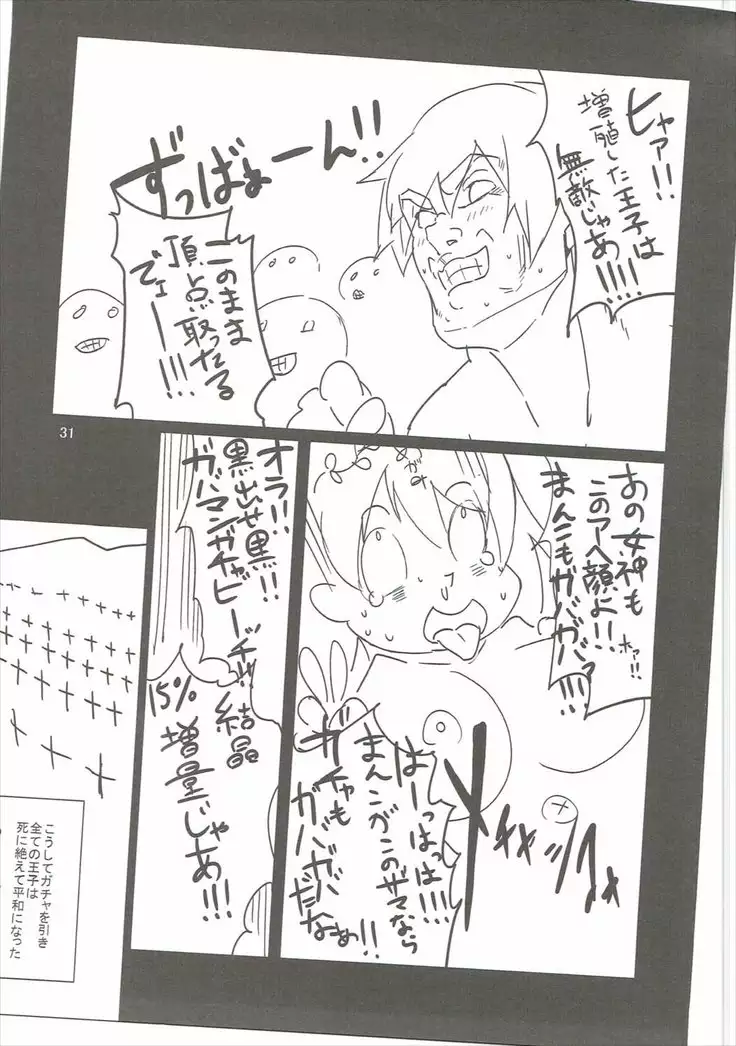 ヒャア!!
増殖した王子は
無敵じゃあ!!!!
ずっばぁーん!!
このまま
頂点取ったる
でェーー!!!
31
あの女神も
このアヘ顔よ!!
まんこもガバガバッ!!!!
ホァァ!!
めがみ
はーっはっはっ!!!!
まんこがこのザマなら
ガチャも
ガバガバ
だなぁぁ!!
オラ!!
黒出せ黒!!
ガバマンガチャビーッチ!!
結晶
15%
増量じゃあ!!!
こうしてガチャを引き
全ての王子は
死に絶えて平和になった